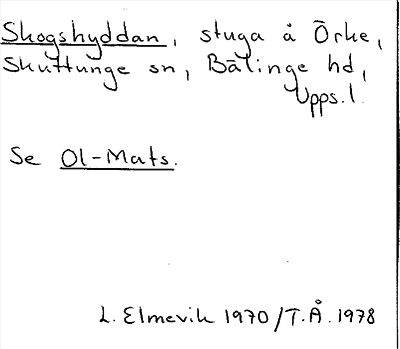 Skogshyddan, stuga å Örke,
Skuttunge sn, Bälinge hd,
Upps.l.
Se Ol-Mats.
L. Elmevik 1970/T.Å. 1978